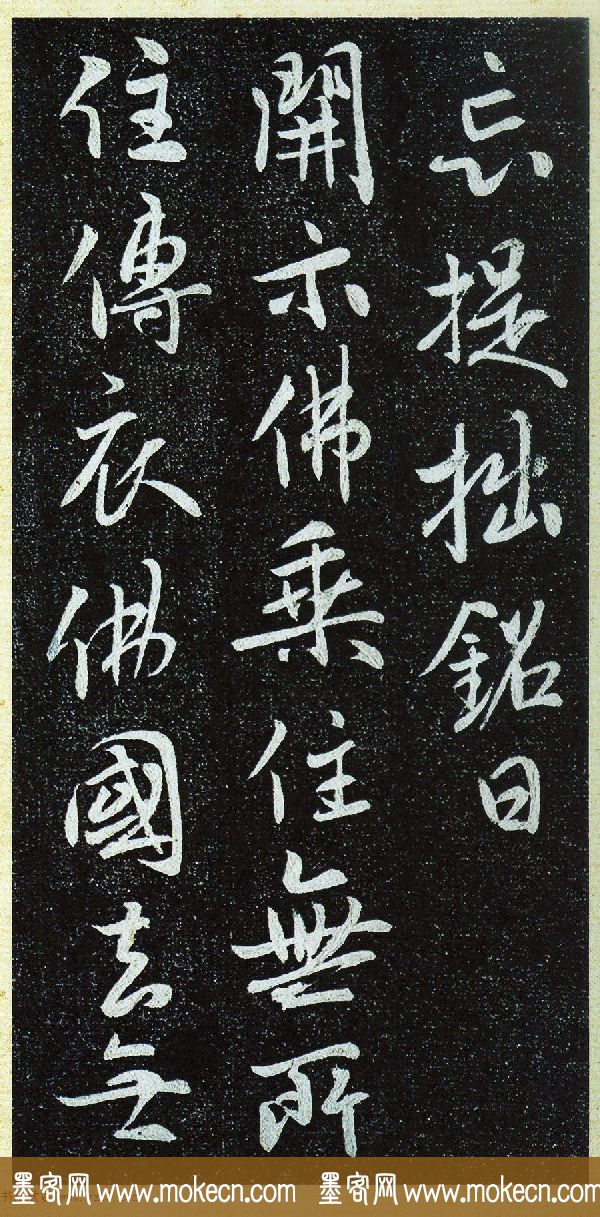 忘提拙銘曰
開示佛乘住無所
住傳衣佛國去無
墨客网 www.mokecn.com 墨客网 www.mokecn.com